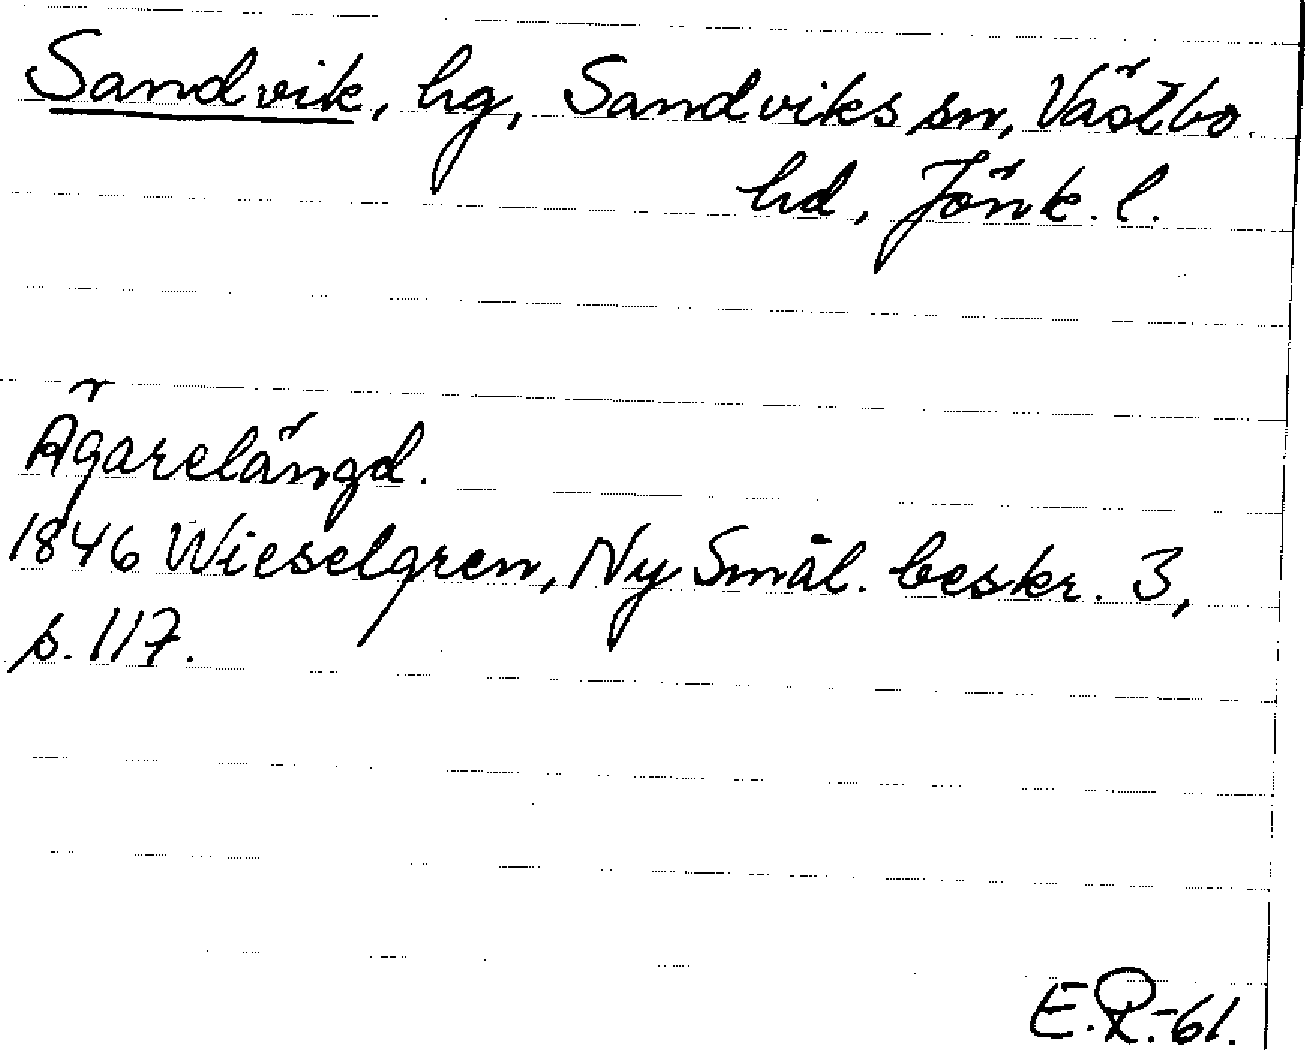 Sandvik, hg, Sandviks sn, Västbo
hd, Jönk. l.
Ägarelängd.
1846 Wieselgren, Ny Smål. beskr. 3,
s. 117.
E.R.-61.